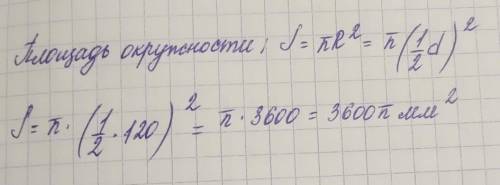 Площадь окружности; S = πR² = π(1/2 d)²
S = π · (1/2 · 120)² = π · 3600 = 3600π мм²